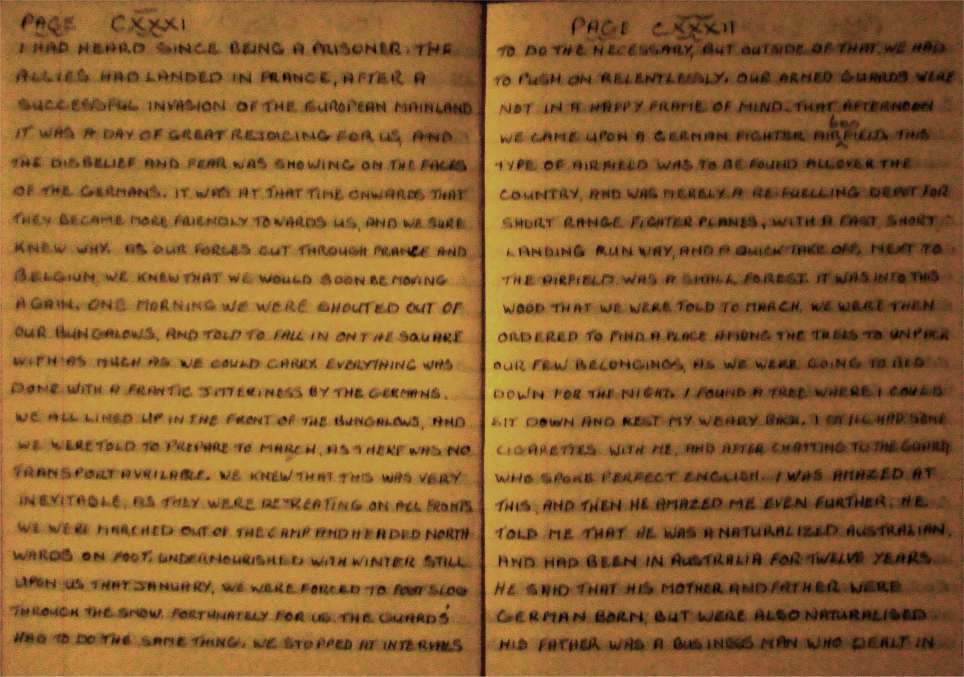 PAGE CXXXI
I HAD HEARD SINCE BEING A PRISONER. THE
ALLIES HAD LANDED IN FRANCE, AFTER A
SUCCESSFUL INVASION OF THE EUROPEAN MAINLAND
IT WAS A DAY OF GREAT REJOICING FOR US, AND
THE DISBELIEF AND FEAR WAS SHOWING ON THE FACES
OF THE GERMANS. IT WAS AT THAT TIME ONWARDS THAT
THEY BECAME MORE FRIENDLY TOWARDS US, AND WE SURE
KNEW WHY. AS OUR FORCES CUT THROUGH FRANCE AND
BELGIUM, WE KNEW THAT WE WOULD SOON BE MOVING
AGAIN. ONE MORNING WE WERE SHOUTED OUT OF
OUR BUNGALOWS, AND TOLD TO FALL IN ON THE SQUARE
WITH AS MUCH AS WE COULD CARRY. EVERYTHING WAS
DONE WITH A FRANTIC JITTERINESS BY THE GERMANS.
WE ALL LINED UP IN THE FRONT OF THE BUNGALOWS, AND
WE WERE TOLD TO PREPARE TO MARCH, AS THERE WAS NO
TRANSPORT AVAILABLE. WE KNEW THAT THIS WAS VERY
INEVITABLE, AS THEY WERE RETREATING ON ALL FRONTS.
WE WERE MARCHED OUT OF THE CAMP AND HEADED NORTH
WARDS ON FOOT. UNDERNOURISHED WITH WINTER STILL
UPON US THAT JANUARY, WE WERE FORCED TO FOOT SLOG
THROUGH THE SNOW. FORTUNATELY FOR US THE GUARDS'
HAD TO DO THE SAME THING. WE STOPPED AT INTERVALS
PAGE CXXXII
TO DO THE NECESSARY, BUT OUTSIDE OF THAT. WE HAD
TO PUSH ON RELENTLESSLY. OUR ARMED GUARDS WERE
NOT IN A HAPPY FRAME OF MIND. THAT AFTERNOON
WE CAME UPON A GERMAN FIGHTER AIRFIELD. THIS
TYPE OF AIRFIELD WAS TO BE FOUND ALL OVER THE
COUNTRY, AND WAS MERELY A RE-FUELLING DEPOT FOR
SHORT RANGE FIGHTER PLANES, WITH A FAST SHORT
LANDING RUN WAY, AND A QUICK TAKE OFF. NEXT TO
THE AIRFIELD WAS A SMALL FOREST. IT WAS INTO THIS
WOOD THAT WE WERE TOLD TO MARCH. WE WERE THEN
ORDERED TO FIND A PLACE AMONG THE TREES TO UNPACK
OUR FEW BELONGINGS, AS WE WERE GOING TO BED
DOWN FOR THE NIGHT. I FOUND A TREE WHERE I COULD
SIT DOWN AND REST MY WEARY BACK. I STILL HAD SOME
CIGARETTES WITH ME, AND AFTER CHATTING TO THE GUARD,
WHO SPOKE PERFECT ENGLISH. I WAS AMAZED AT
THIS, AND THEN HE AMAZED ME EVEN FURTHER. HE
TOLD ME THAT HE WAS A NATURALIZED AUSTRALIAN,
AND HAD BEEN IN AUSTRALIA FOR TWELVE YEARS.
HE SAID THAT HIS MOTHER AND FATHER WERE
GERMAN BORN, BUT WERE ALSO NATURALISED
HIS FATHER WAS A BUSINESS MAN WHO DEALT IN